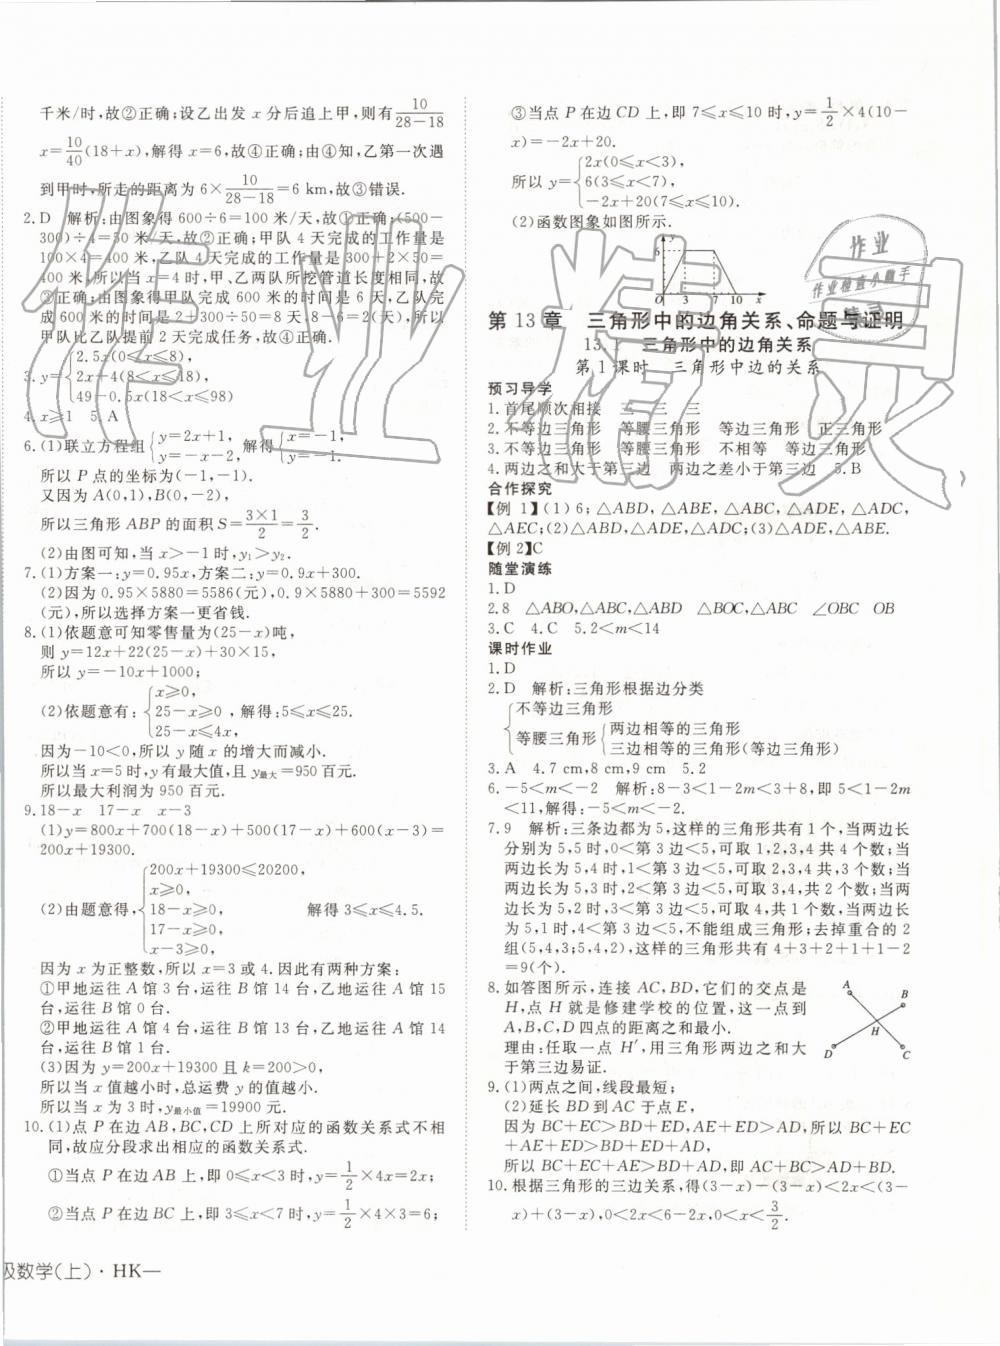 千米/时,故②正确;设乙出发 x 分后追上甲,则有10/(28-18)
x=10/40(18+x),解得 x=6,故④正确;由④知,乙第一次遇
到甲时,所走的距离为 6×10/(28-18)=6 km,故③错误.
2.D 解析:由图象得 600÷6=100 米/天,故①正确;(500-
300)÷4=50 米/天,故②正确;甲队 4 天完成的工作量是
100×4=400 米,乙队 4 天完成的工作量是 300+2×50=
400 米,所以当 x=4 时,甲、乙两队所挖管道长度相同,故
③正确;由图象得甲队完成 600 米的时间是 6 天,乙队完
成 600 米的时间是 2+300÷50=8 天,8-6=2(天),所以
甲队比乙队提前 2 天完成任务,故④正确.
3.y={2.5x(0≤x≤8),
2x+4(8<x≤18),
49-0.5x(18<x≤98)
4.x≥1 5.A
6.(1)联立方程组{y=2x+1, y=-x-2, 解得{x=-1, y=-1.
所以 P 点的坐标为(-1,-1).
又因为 A(0,1),B(0,-2),
所以三角形 ABP 的面积 S=3×1/2=3/2.
(2)由图可知,当 x>-1 时,y₁>y₂.
7.(1)方案一:y=0.95x,方案二:y=0.9x+300.
(2)因为 0.95×5880=5586(元),0.9×5880+300=5592
(元),所以选择方案一更省钱.
8.(1)依题意可知零售量为(25-x)吨,
则 y=12x+22(25-x)+30×15,
所以 y=-10x+1000;
(2)依题意有:{x≥0, 25-x≥0, 25-x≤4x, 解得:5≤x≤25.
因为-10<0,所以 y 随 x 的增大而减小.
所以当 x=5 时,y 有最大值,且 y最大=950 百元.
所以最大利润为 950 百元.
9.18-x 17-x x-3
(1)y=800x+700(18-x)+500(17-x)+600(x-3)=
200x+19300.
(2)由题意得,{200x+19300≤20200,
x≥0,
18-x≥0, 解得 3≤x≤4.5.
17-x≥0,
x-3≥0,
因为 x 为正整数,所以 x=3 或 4.因此有两种方案:
①甲地运往 A 馆 3 台,运往 B 馆 14 台,乙地运往 A 馆 15
台,运往 B 馆 0 台.
②甲地运往 A 馆 4 台,运往 B 馆 13 台,乙地运往 A 馆 14
台,运往 B 馆 1 台.
(3)因为 y=200x+19300 且 k=200>0,
所以当 x 值越小时,总运费 y 的值越小.
所以当 x 为 3 时,y最小值=19900 元.
10.(1)点 P 在边 AB,BC,CD 上所对应的函数关系式不相
同,故应分段求出相应的函数关系式.
①当点 P 在边 AB 上,即 0≤x<3 时,y=1/2×4x=2x;
②当点 P 在边 BC 上,即 3≤x<7 时,y=1/2×4×3=6;
级数学(上)·HK—
③当点 P 在边 CD 上,即 7≤x≤10 时,y=1/2×4(10-
x)=-2x+20.
所以 y={2x(0≤x<3),
6(3≤x<7),
-2x+20(7≤x≤10).
(2)函数图象如图所示.
y
6
0 3 7 10 x
第 13 章 三角形中的边角关系、命题与证明
13.1 三角形中的边角关系
第 1 课时 三角形中边的关系
预习导学
1.首尾顺次相接 三 三 三
2.不等边三角形 等腰三角形 等边三角形 正三角形
3.不等边三角形 等腰三角形 不相等 等边三角形
4.两边之和大于第三边 两边之差小于第三边 5.B
合作探究
【例 1】(1)6;△ABD,△ABE,△ABC,△ADE,△ADC,
△AEC;(2)△ABD,△ADE,△ADC;(3)△ADE,△ABE.
【例 2】C
随堂演练
1.D
2.8 △ABO,△ABC,△ABD △BOC,△ABC ∠OBC OB
3.C 4.C 5.2<m<14
课时作业
1.D
2.D 解析:三角形根据边分类
{不等边三角形
等腰三角形{两边相等的三角形
三边相等的三角形(等边三角形)
3.A 4.7 cm,8 cm,9 cm 5.2
6.-5<m<-2 解析:8-3<1-2m<3+8,即 5<1-2m
<11,解得:-5<m<-2.
7.9 解析:三条边都为 5,这样的三角形共有 1 个,当两边长
分别为 5,5 时,0<第 3 边<5,可取 1,2,3,4 共 4 个数;当
两边长为 5,4 时,1<第 3 边<5,可取 2,3,4,共 3 个数;当
两边长为 5,3 时,2<第 3 边<5,可取 3,4,共 2 个数;当两
边长为 5,2 时,3<第 3 边<5,可取 4,共 1 个数,当两边长
为 5,1 时,4<第 3 边<5,不能组成三角形;去掉重合的 2
组(5,4,3;5,4,2),这样的三角形共有 4+3+2+1+1-2
=9(个).
8.如答图所示,连接 AC,BD,它们的交点是
H,点 H 就是修建学校的位置,这一点到
A,B,C,D 四点的距离之和最小.
理由:任取一点 H′,用三角形两边之和大
于第三边易证.
A
B
H
D
C
9.(1)两点之间,线段最短;
(2)延长 BD 到 AC 于点 E,
因为 BC+EC>BD+ED,AE+ED>AD,所以 BC+EC
+AE+ED>BD+ED+AD,
所以 BC+EC+AE>BD+AD,即 AC+BC>AD+BD.
10.根据三角形的三边关系,得(3-x)-(3-x)<2x<(3-
x)+(3-x),0<2x<6-2x,0<x<3/2.
作业精灵
作业
作业检查小助手